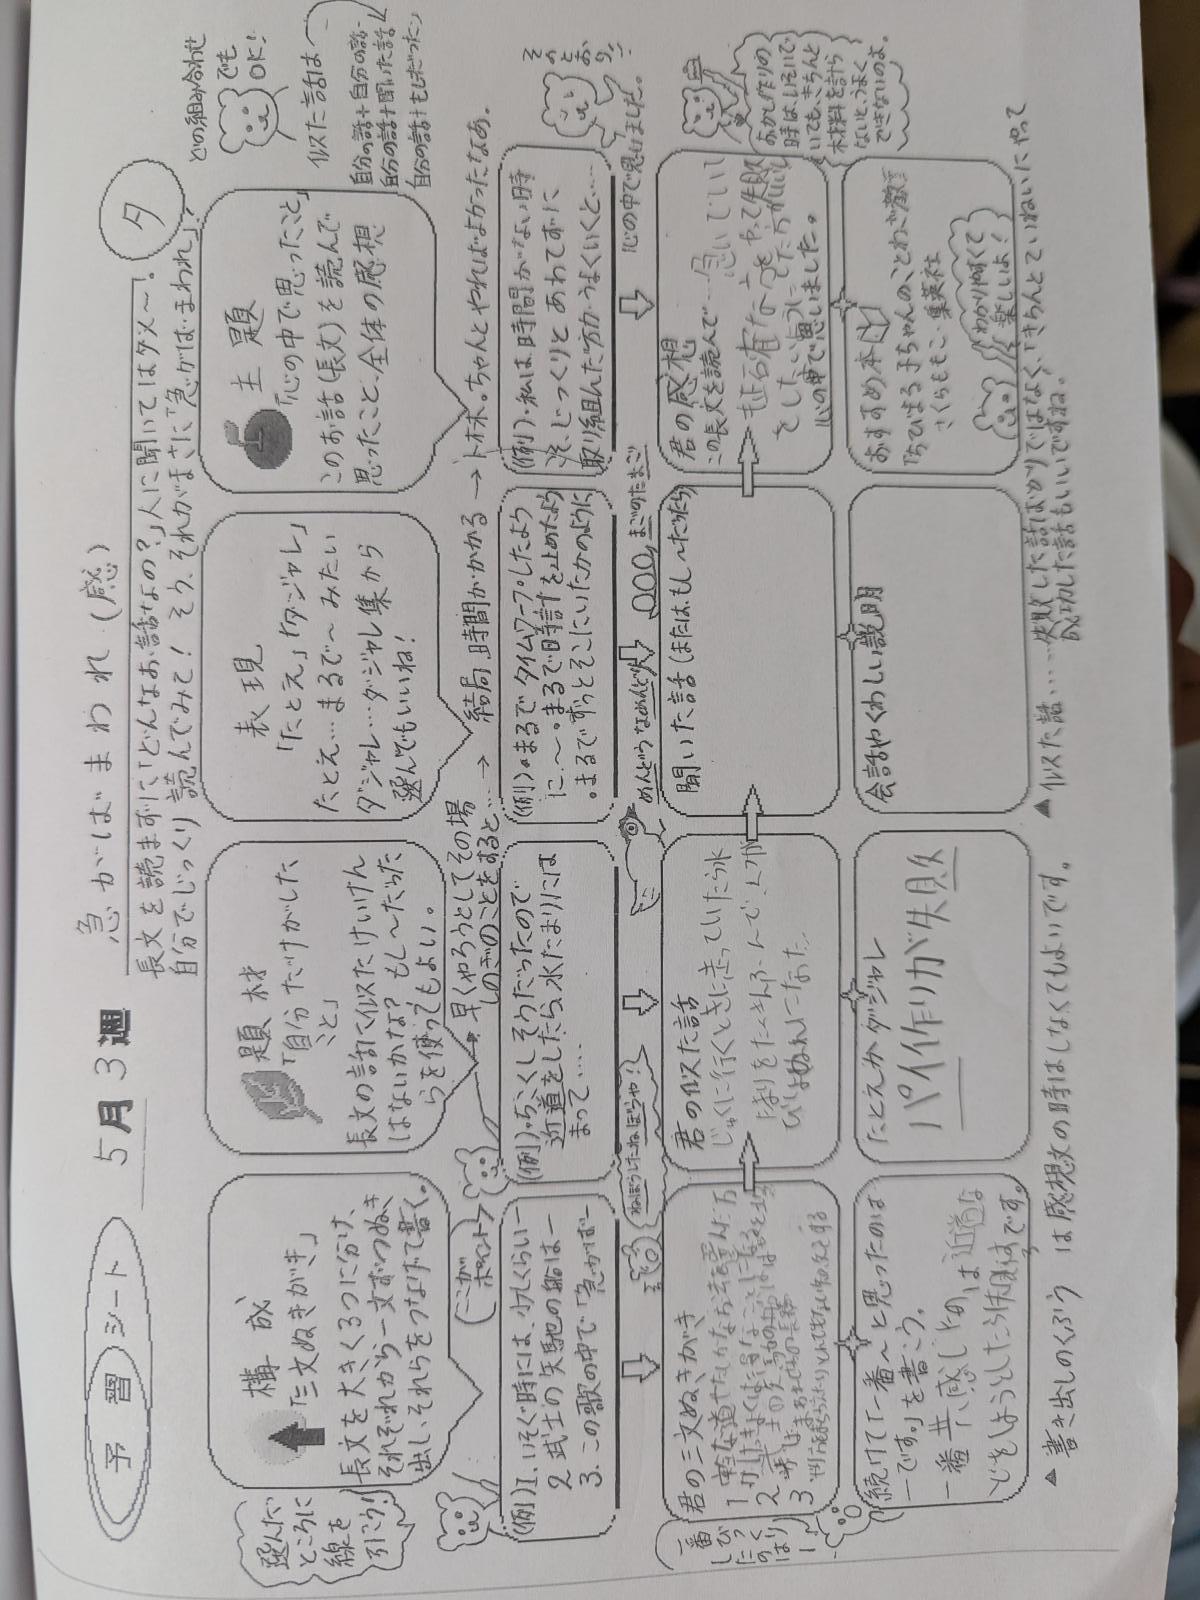 予習シート
5月3週
急がば まわれ (感)
夕
長文を読まずに「どんなお話なの?」人に聞いてはダメ〜!
自分でじっくり読んでみて! そう、それがまさに「急がば まわれ」?
どの組み合わせ
でも
OK!
似た話は
自分の話+自分の話
自分の話+聞いた話
自分の話+もし〜だったら
選んだ
ところに
線を
引こう!
構成
「三文ぬきがき」
長文を大きく3つに分け、
それぞれから一文ずつぬき
出し、それらをつなげて書く。
ここが
ポイント
題材
「自分だけがした
こと」
長文の話に似たけいけん
はないかな? もし〜だったら
を使ってもよい。
表現
「たとえ」「ダジャレ」
たとえ…まるで〜みたい
ダジャレ…ダジャレ集から
選んでもいいね!
主題
「心の中で思ったこと」
このお話(長文)を読んで
思ったこと、全体の感想
早くやろうとしてその場
しのぎのことをすると…
→ 結局、時間がかかる →
ちゃんとやればよかったなあ。
(例) 1. いそぐ時には、少しくらい―
2. 武士の矢馳の船は―
3. この歌の中で「急がば―
(例)・ちこくしそうだったので
近道をしたら、水たまりには
まって……
(例)・まるでタイムワープしたよう
に、〜・まるで時計を止めたよう
・まるでずっとそこにいたかのように
(例)・私は、時間がない時
こそ、じっくりとあわてずに
取り組んだ方がうまくいくと……
そのとおり!!
心の中で思いました。
めんどうなめんどり
まごのたまご
君の三文ぬきがき
1
2
3
一番
しっくり
君の似た話
じゅくに行くときに走っていたら水
たまりをたくさんふんで
びしょぬれになった
聞いた話(または、もし〜だったら)
君の感想
この長文を読んで……急いでいし
も
心の中で思いました。
おかし作りの
時は、いそいで
いても、きちんと
材料を計ら
ないと、うまく
できないのよ。
続けて「一番〜と思ったのは
―です。」を書こう。
一番共感したのは近道な
どをしようとしたら
です。
たとえかダジャレ
パイ作りが失敗
会話やくわしい説明
おすすめ本
「ちびまる子ちゃんのことわざ教室」
さくらももこ・集英社
わかりやすくて
楽しいよ!
▲ 書き出しのくふう は感想文の時はしなくてもよいです。
▲ 似た話……失敗した話ばかりではなく、「きちんとていねいにやって
成功した話」もいいですね。